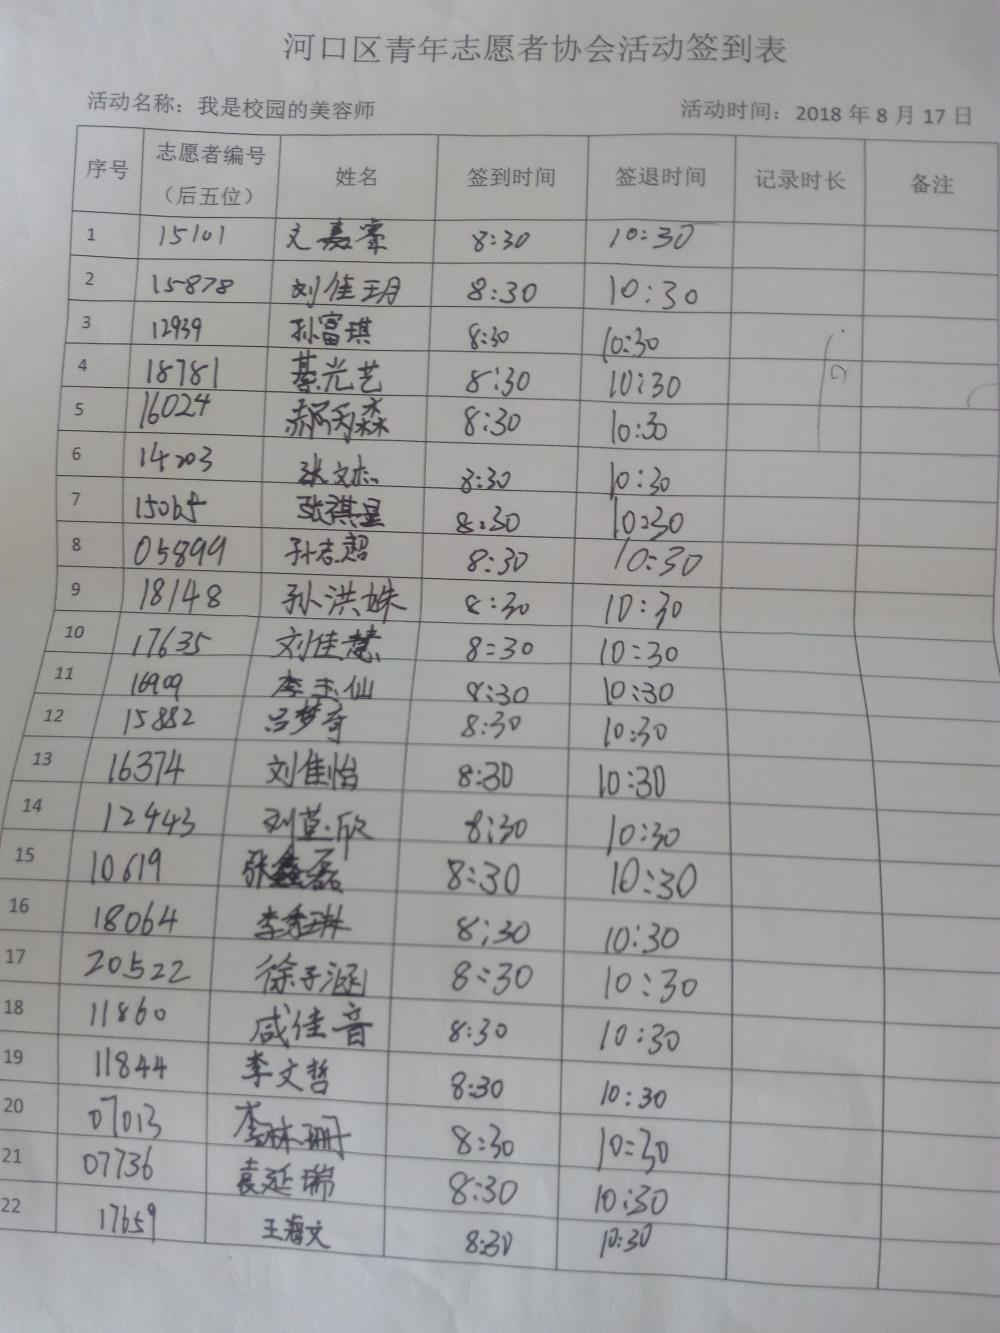 河口区青年志愿者协会活动签到表
活动名称：我是校园的美容师 活动时间：2018 年 8 月 17 日
序号 志愿者编号（后五位） 姓名 签到时间 签退时间 记录时长 备注
1 15101 文嘉睿 8:30 10:30
2 15878 刘佳玥 8:30 10:30
3 12939 孙富琪 8:30 10:30
4 18781 綦光艺 8:30 10:30
5 16024 郝丙淼 8:30 10:30
6 14203 张文杰 8:30 10:30
7 15065 张祺星 8:30 10:30
8 05899 孙志超 8:30 10:30
9 18148 孙洪姝 8:30 10:30
10 17635 刘佳慧 8:30 10:30
11 16909 李玉仙 8:30 10:30
12 15882 吕梦奇 8:30 10:30
13 16374 刘佳怡 8:30 10:30
14 12443 刘 欣 8:30 10:30
15 10619 张鑫磊 8:30 10:30
16 18064 李秀琳 8:30 10:30
17 20522 徐子涵 8:30 10:30
18 11860 咸佳音 8:30 10:30
19 11844 李文哲 8:30 10:30
20 07013 李林珊 8:30 10:30
21 07736 袁延瑞 8:30 10:30
22 17659 王海文 8:30 10:30